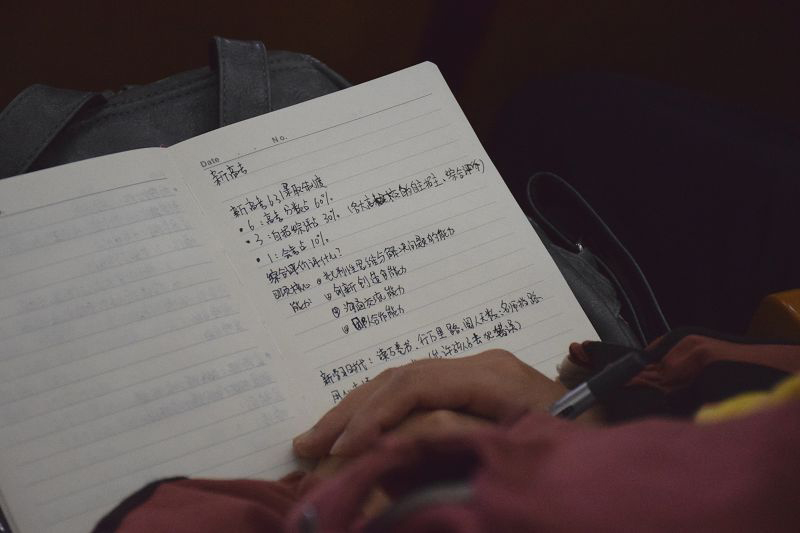 Date . . No.
新高考
新高考631录取制度
• 6：高考分数占60%
• 3：自招综评占30%（各大高校的自主招生、综合评价）
• 1：会考占10%
综合评价评什么？
四项核心 ① 批判性思维与解决问题的能力
能力 ② 创新创造的能力
③ 沟通交流能力
④ 合作能力
新学习时代：读万卷书、行万里路、阅人无数、名师指路